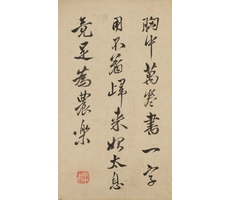 胸中萬卷書一字
用不著歸來始太息
竟足為農樂